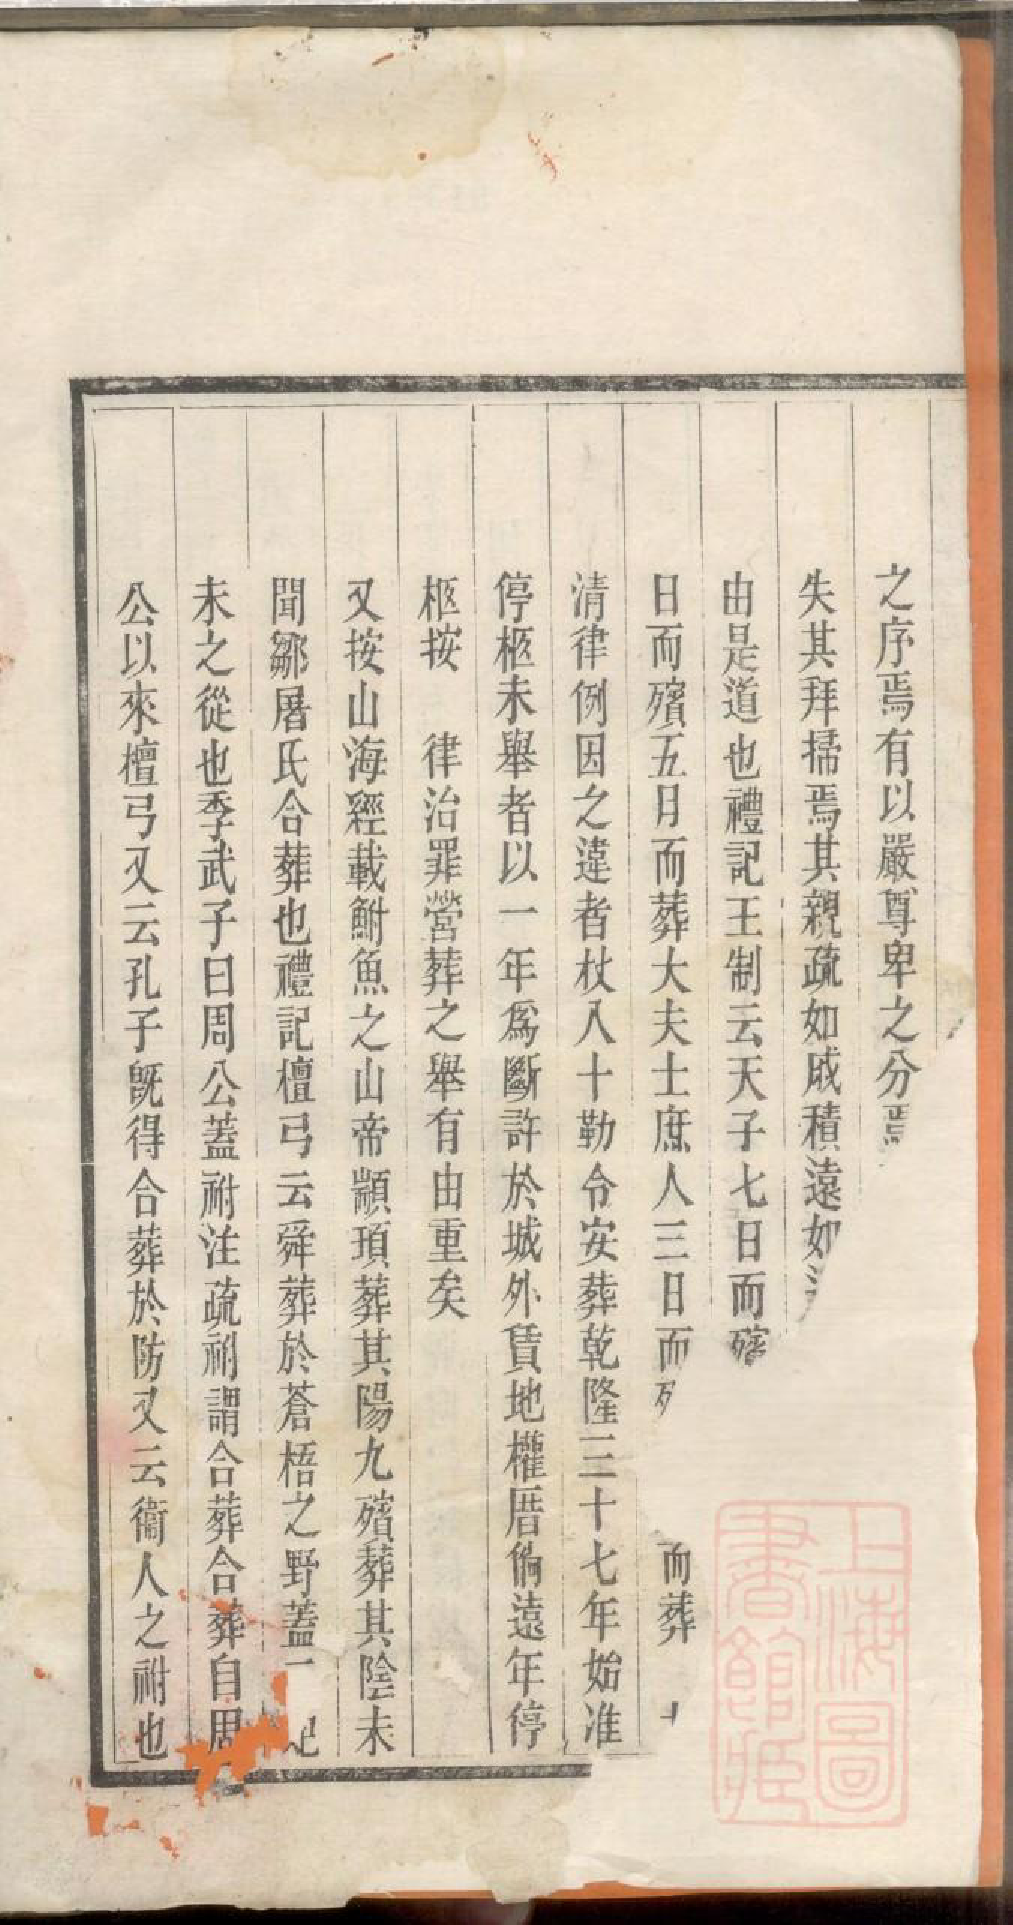 之序焉有以嚴尊卑之分焉
失其拜掃焉其親疏如戚積遠如
由是道也禮記王制云天子七日而殯
日而殯五月而葬大夫士庶人三日而 而葬
清律例因之違者杖八十勒令安葬乾隆三十七年始准
停柩未舉者以一年爲斷許於城外賃地權厝倘遠年停
柩按　律治罪營葬之舉有由重矣
又按山海經載鮒魚之山帝顓頊葬其陽九殯葬其陰未
聞鄒屠氏合葬也禮記檀弓云舜葬於蒼梧之野蓋
未之從也季武子曰周公蓋祔注疏祔謂合葬合葬自周
公以來檀弓又云孔子旣得合葬於防又云衞人之祔也
上海圖書館藏